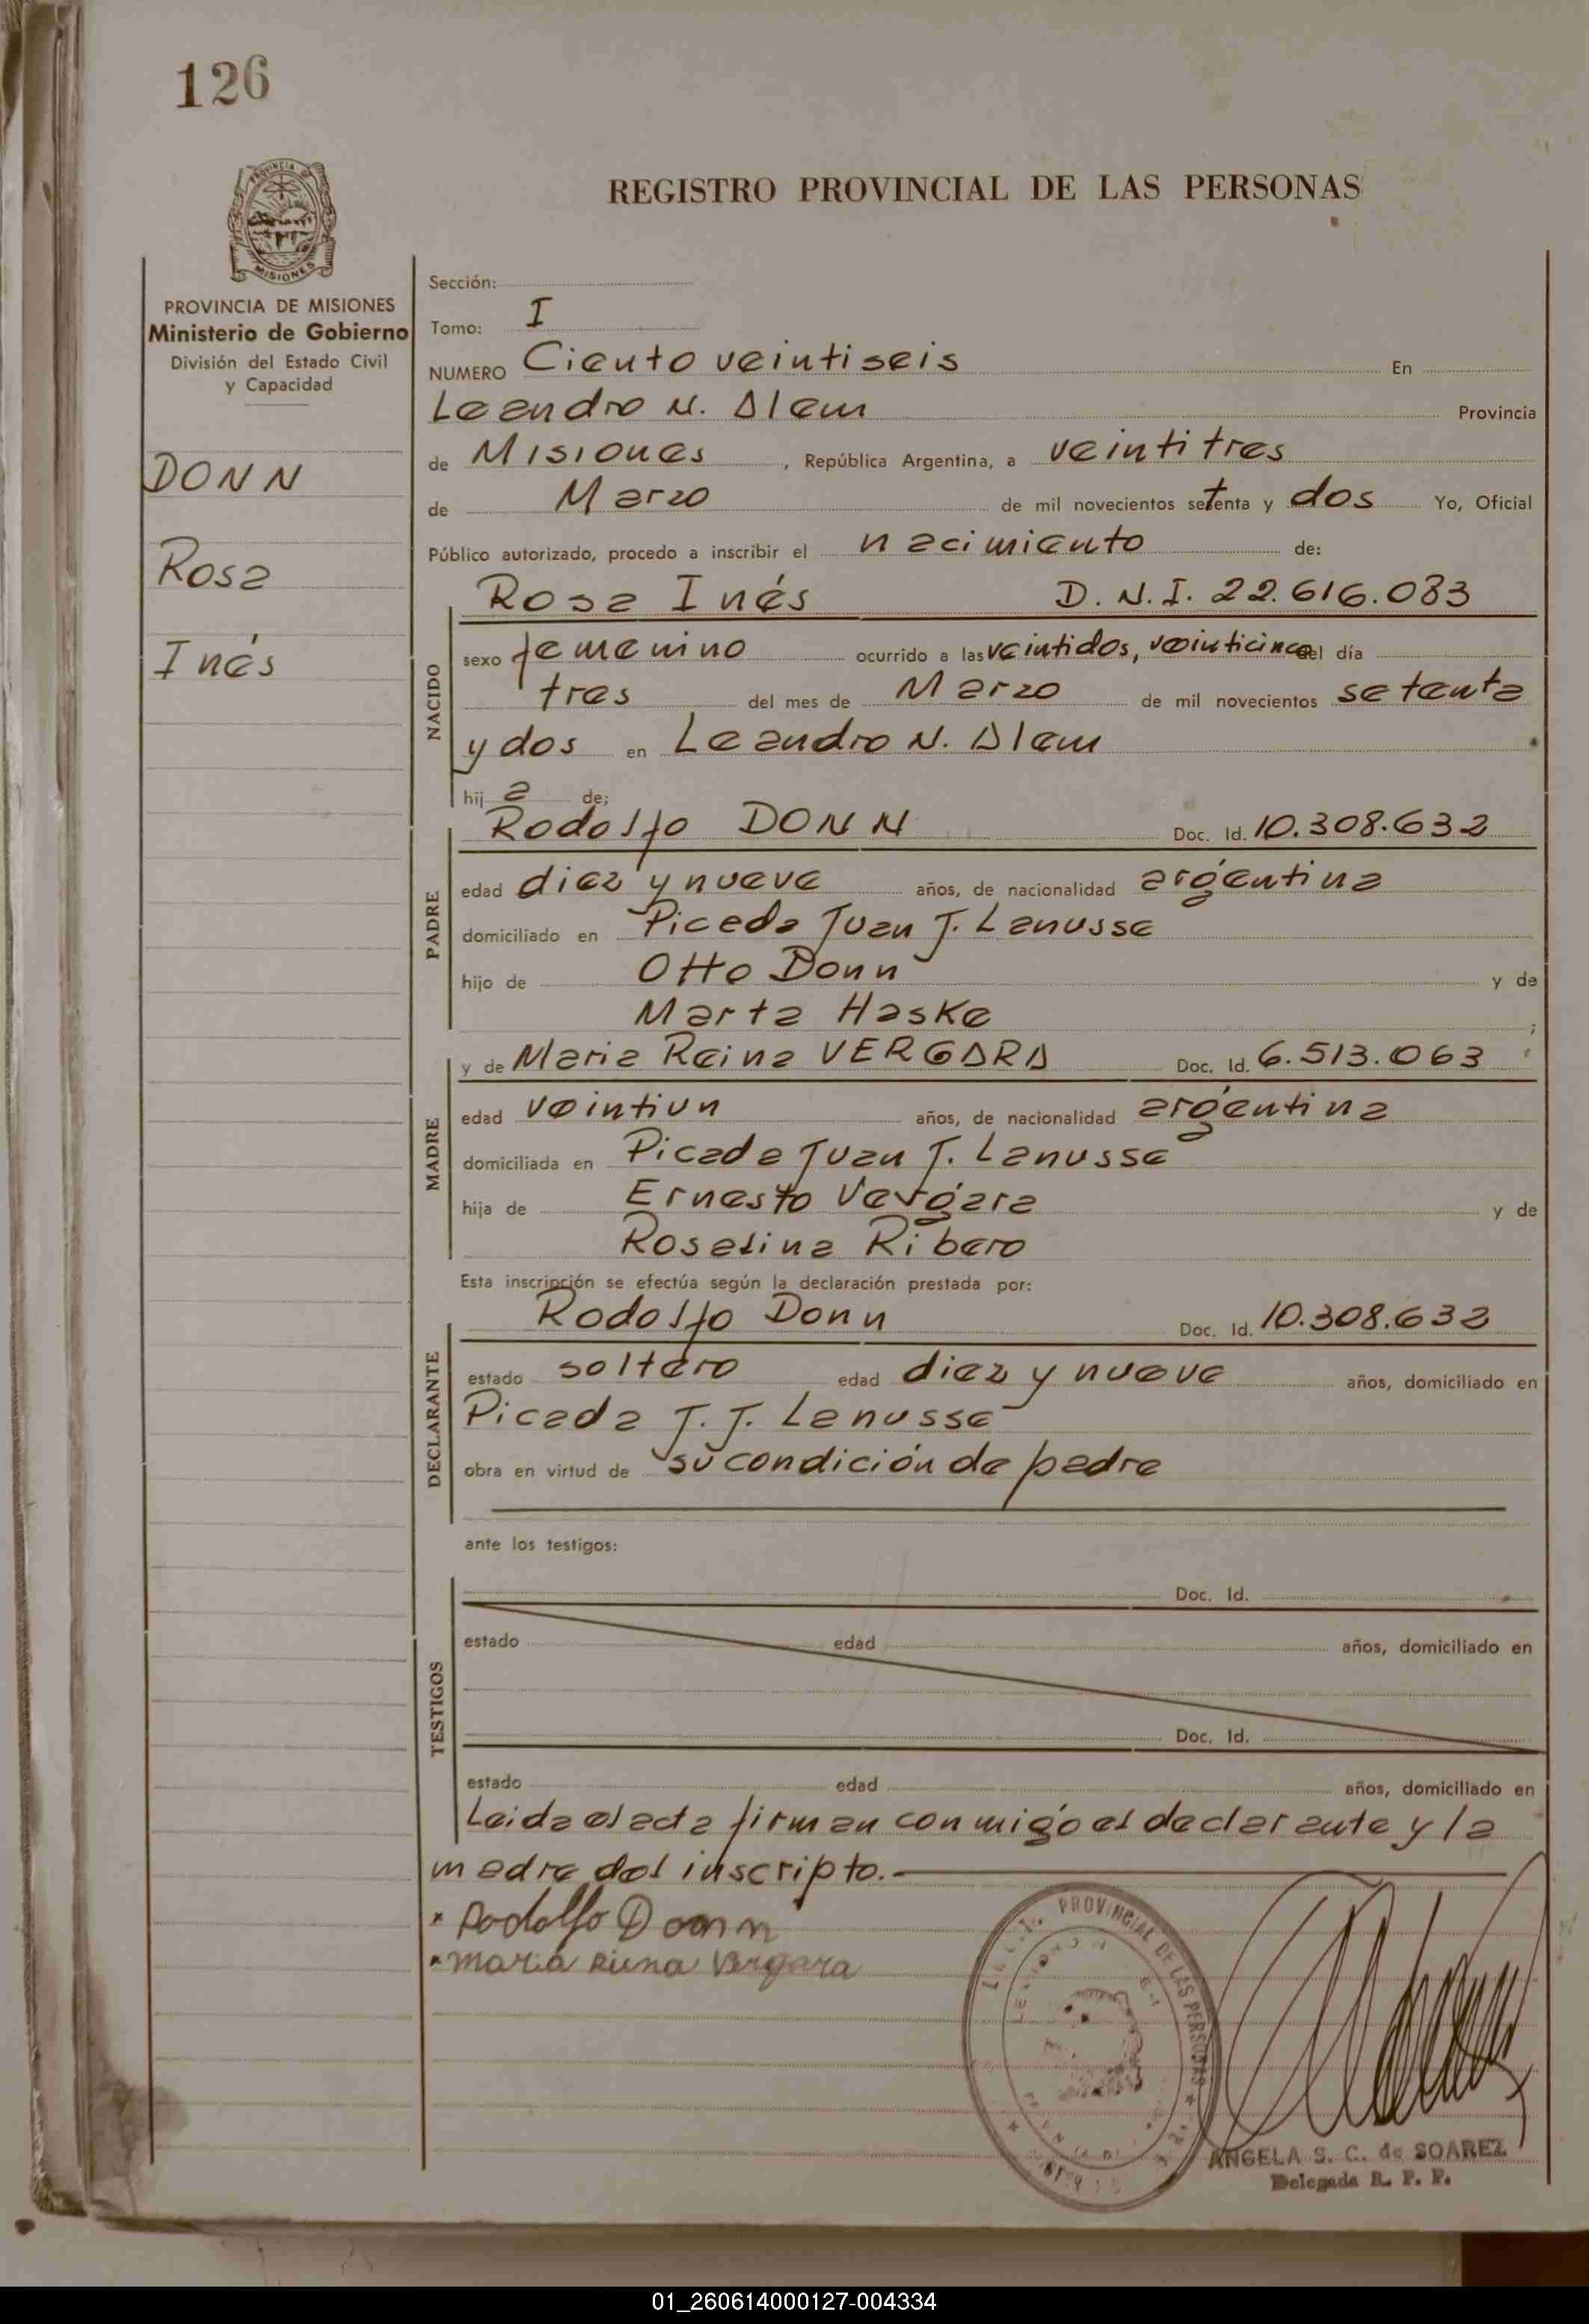 126
PROVINCIA DE
MISIONES
REGISTRO PROVINCIAL DE LAS PERSONAS
PROVINCIA DE MISIONES
Ministerio de Gobierno
División del Estado Civil
y Capacidad
DONN
Rosa
Inés
Sección:
Tomo: I
NUMERO Ciento veintiseis En
Leandro N. Alem Provincia
de Misiones, República Argentina, a veintitres
de Marzo de mil novecientos setenta y dos Yo, Oficial
Público autorizado, procedo a inscribir el nacimiento de:
Rosa Inés D.N.I. 22.616.083
NACIDO
sexo femenino ocurrido a las veintidos, veinticinco del día
tres del mes de Marzo de mil novecientos setenta
y dos en Leandro N. Alem
hij a de;
Rodolfo DONN Doc. Id. 10.308.632
PADRE
edad diez y nueve años, de nacionalidad argentina
domiciliado en Picada Juan J. Lanusse
hijo de Otto Donn y de
Marta Haske ;
y de Maria Reina VERGARA Doc. Id. 6.513.063
MADRE
edad veintiun años, de nacionalidad argentina
domiciliada en Picada Juan J. Lanusse
hija de Ernesto Vergara y de
Rosalina Ribero
Esta inscripción se efectúa según la declaración prestada por:
Rodolfo Donn Doc. Id. 10.308.632
DECLARANTE
estado soltero edad diez y nueve años, domiciliado en
Picada J. J. Lanusse
obra en virtud de su condición de padre
ante los testigos:
Doc. Id.
TESTIGOS
estado edad años, domiciliado en
Doc. Id.
estado edad años, domiciliado en
Leida el acta firman conmigo el declarante y la
madre del inscripto.-
Rodolfo Donn
maria Riena Vergara
PROVINCIAL DE LAS PERSONAS
ANGELA S. C. de SOAREZ
Delegada R. P. P.
01_260614000127-004334